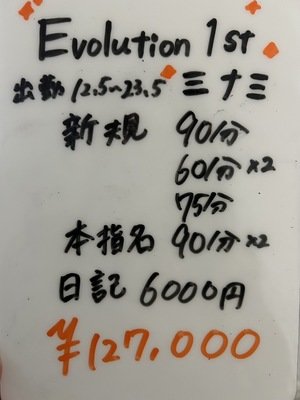 Evolution 1st
出勤 12.5~23.5 三十三
新規 90分
60分×2
75分
本指名 90分×2
日記 6000円
¥127.000